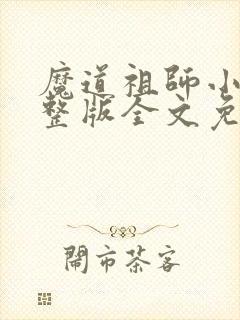 魔道祖師小
整版全文免
閙市茶客